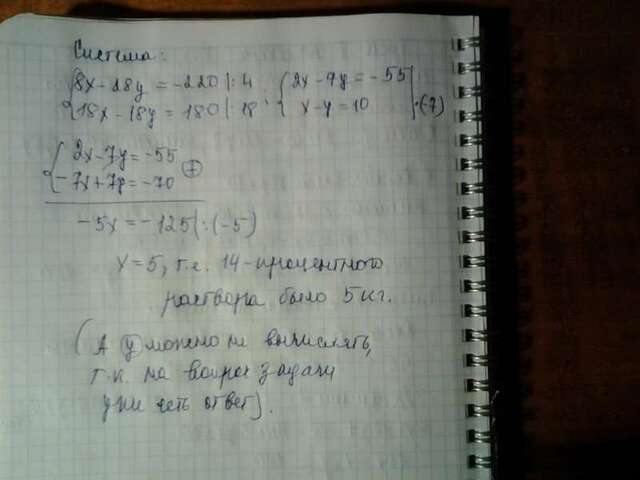 Система:
{8x-28y=-220|:4 {2x-7y=-55
18x-18y=180|:18' x-y=10 |·(-7)
{2x-7y=-55
-7x+7y=-70 (+)
-5x=-125|:(-5)
x=5, т.е. 14-процентного
раствора было 5 кг.
(А y можно не вычислять,
т.к. на вопрос задачи
уже есть ответ).